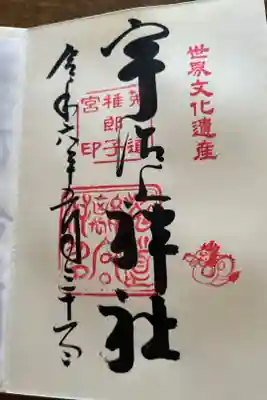 世界文化遺産
宇治上神社
菟道
稚郎子
宮印
令和六年五月二十一日